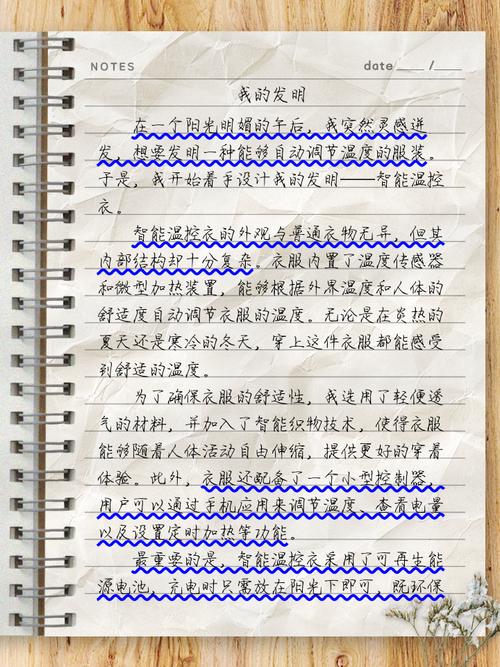 NOTES date /
我的发明
在一个阳光明媚的午后，我突然灵感迸
发，想要发明一种能够自动调节温度的服装。
于是，我开始着手设计我的发明——智能温控
衣。
智能温控衣的外观与普通衣物无异，但其
内部结构却十分复杂。衣服内置了温度传感器
和微型加热装置，能够根据外界温度和人体的
舒适度自动调节衣服的温度。无论是在炎热的
夏天还是寒冷的冬天，穿上这件衣服都能感受
到舒适的温度。
为了确保衣服的舒适性，我选用了轻便透
气的材料，并加入了智能织物技术，使得衣服
能够随着人体活动自由伸缩，提供更好的穿着
体验。此外，衣服还配备了一个小型控制器，
用户可以通过手机应用来调节温度、查看电量
以及设置定时加热等功能。
最重要的是，智能温控衣采用了可再生能
源电池，充电时只需放在阳光下即可，既环保